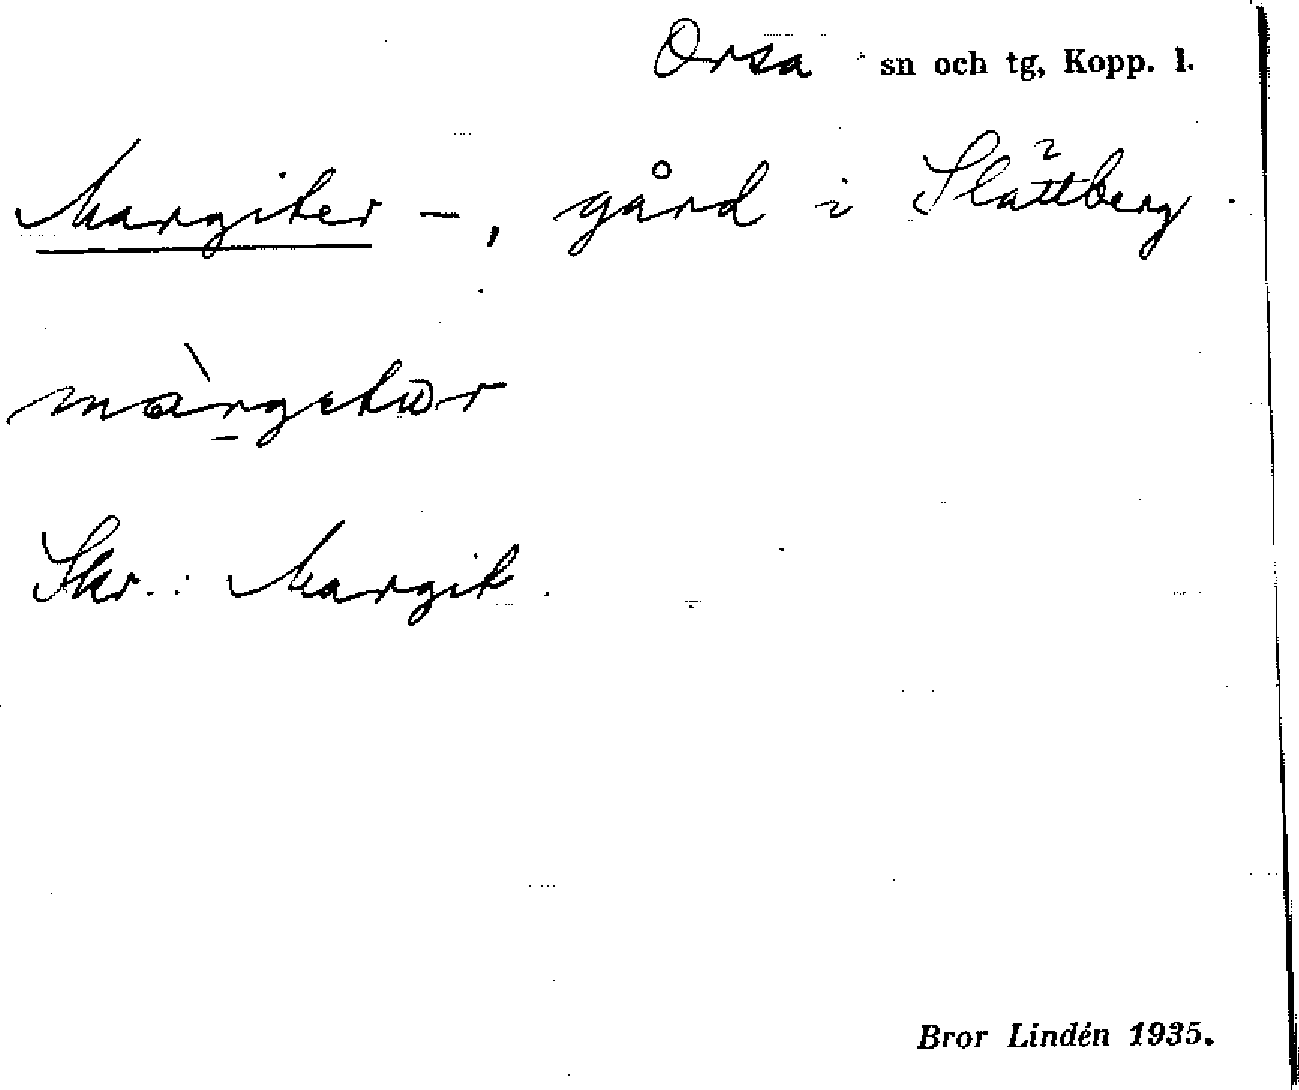 Orsa sn och tg, Kopp. l.
Margiter –, gård i Slättberg.
màrgetær
Skr.: Margit.
Bror Lindén 1935.